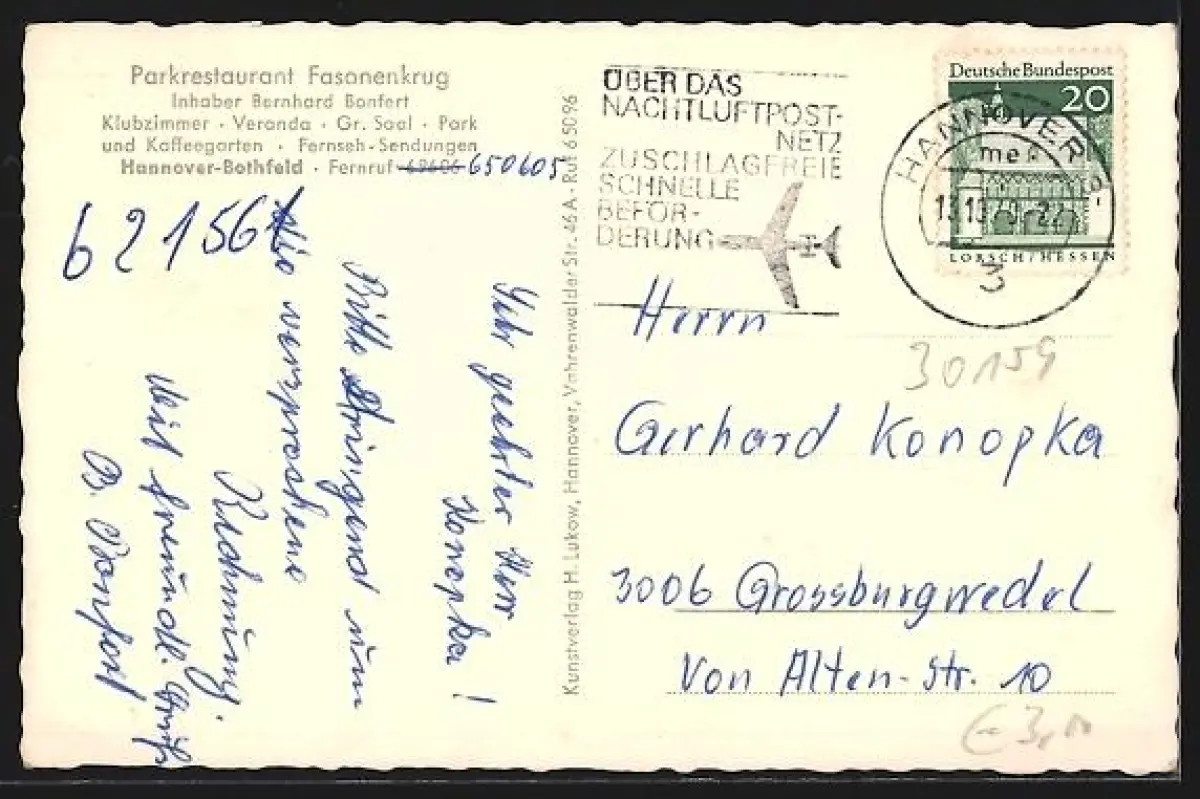 Parkrestaurant Fasanenkrug
Inhaber Bernhard Bonfert
Klubzimmer · Veranda · Gr. Saal · Park
und Kaffeegarten · Fernseh-Sendungen
Hannover-Bothfeld · Fernruf 69606 650605
621561
Sehr geehrter Herr
Konopka!
Bitte dringend um
die versprochene
Rechnung.
Mit freundl. Gruß
B. Bonfert
Kunstverlag H. Lukow, Hannover, Vahrenwalder Str. 46 A · Ruf 6 50 96
ÜBER DAS
NACHTLUFTPOST-
NETZ
ZUSCHLAGFREIE
SCHNELLE
BEFÖR-
DERUNG
HANNOVER
3
Deutsche Bundespost
20
LORSCH/HESSEN
Herrn
30159
Gerhard Konopka
3006 Grossburgwedel
Von Alten-Str. 10
€ 3,00